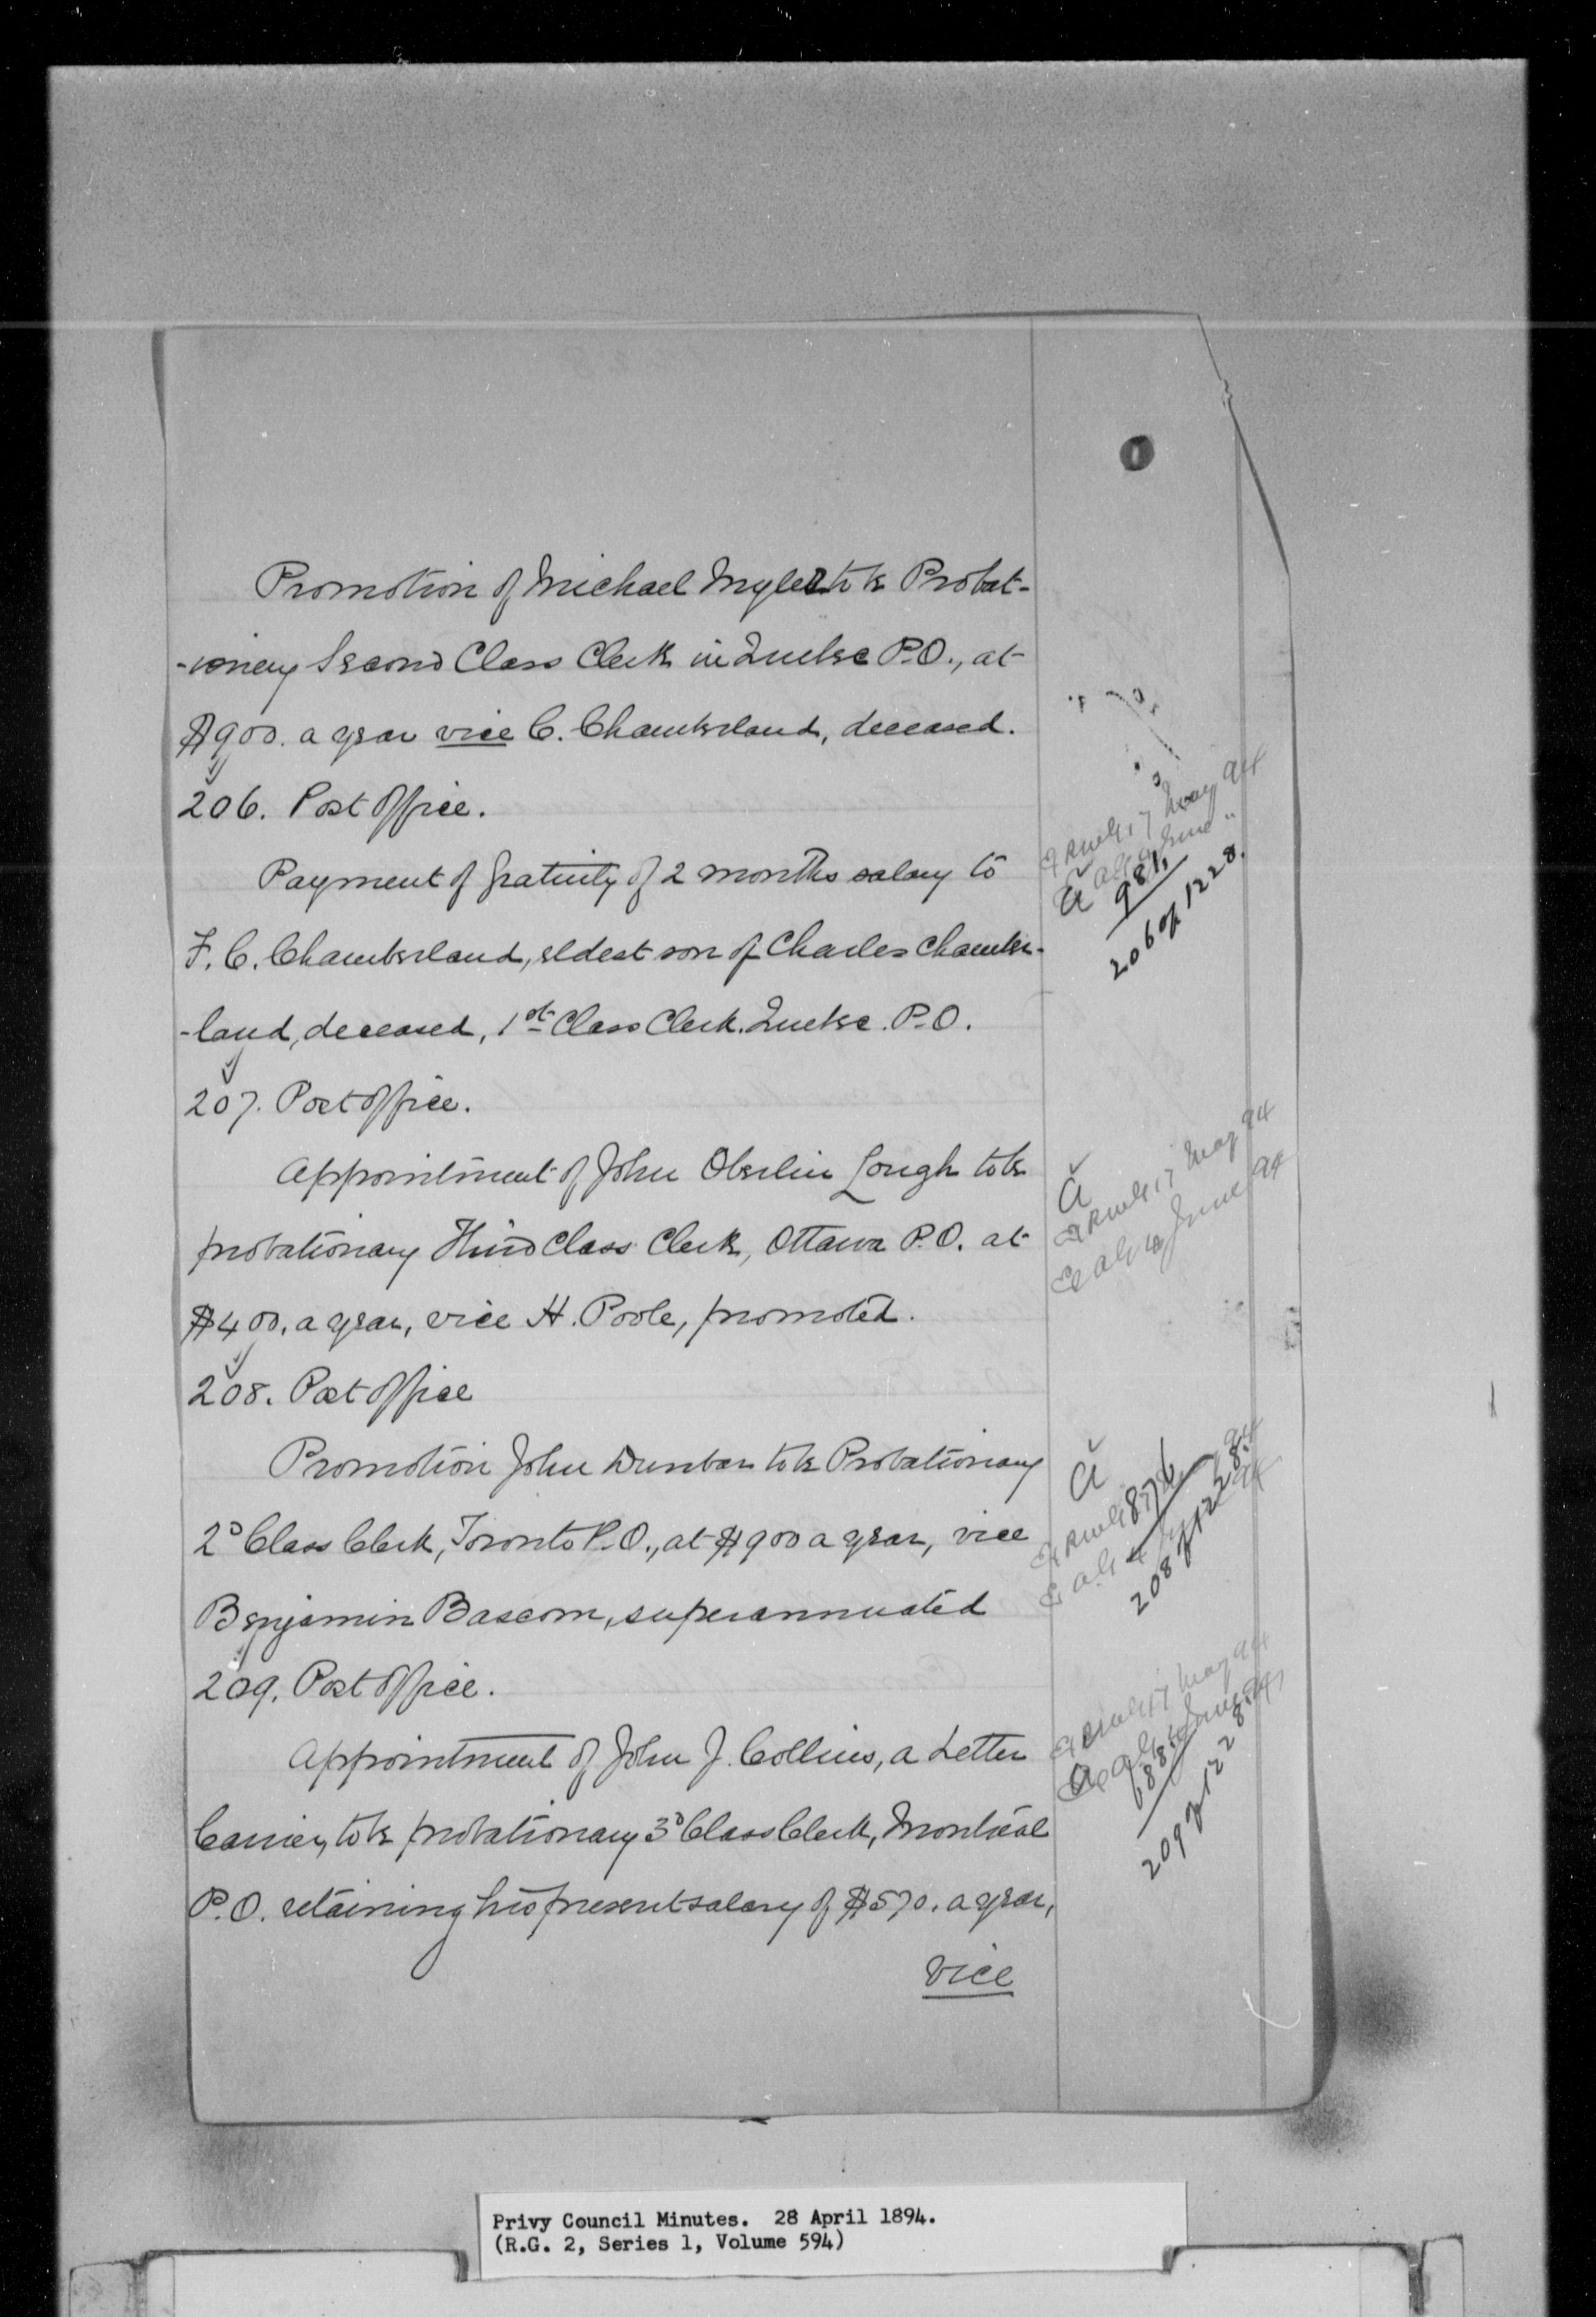 Promotion of Michael Myler to be Probat-
-ionery Second Class Clerk in Quebec P.O., at
$900. a year vice C. Chamberland, deceased.
206. Post Office.
Payment of gratuity of 2 months salary to
F. C. Chamberland, eldest son of Charles Chamber-
-land, deceased, 1st Class Clerk. Quebec. P.O.
207. Post Office.
Appointment of John Oberlin Lough to be
probationary Third Class Clerk, Ottawa P.O. at
$400. a year, vice H. Poole, promoted.
208. Post Office
Promotion John Dunbar to be Probationary
2d Class Clerk, Toronto P.O., at $900 a year, vice
Benjamin Bascom, superannuated
209. Post Office.
Appointment of John J. Collins, a Letter
Carrier, to be probationary 3d Class Clerk, Montreal
P.O. retaining his present salary of $570. a year,
vice
17 May 94
a 981
206 of 1228.
a
17 May 94
June 94
a
876
208 of 1228.
17 May 94
a 88
209 of 1228
Privy Council Minutes. 28 April 1894.
(R.G. 2, Series 1, Volume 594)